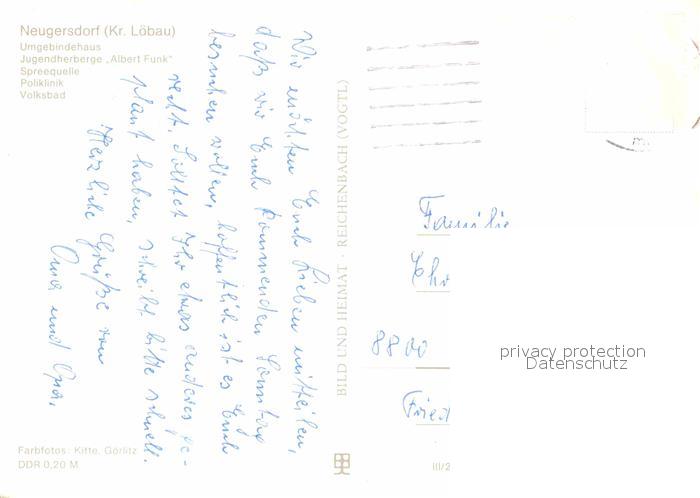 Neugersdorf (Kr. Löbau)
Umgebindehaus
Jugendherberge „Albert Funk"
Spreequelle
Poliklinik
Volksbad
Wir möchten Euch Lieben mitteilen,
daß wir Euch kommenden Samstag
besuchen wollen, hoffentlich ist es Euch
recht. Solltet Ihr etwas anderes ge-
plant haben, schreibt bitte schnell.
Herzliche Grüße von
Oma und Opa.
BILD UND HEIMAT · REICHENBACH (VOGTL)
Familie
Chr
8800
privacy protection
Datenschutz
Fried
Farbfotos: Kitte, Görlitz
DDR 0,20 M
III/2